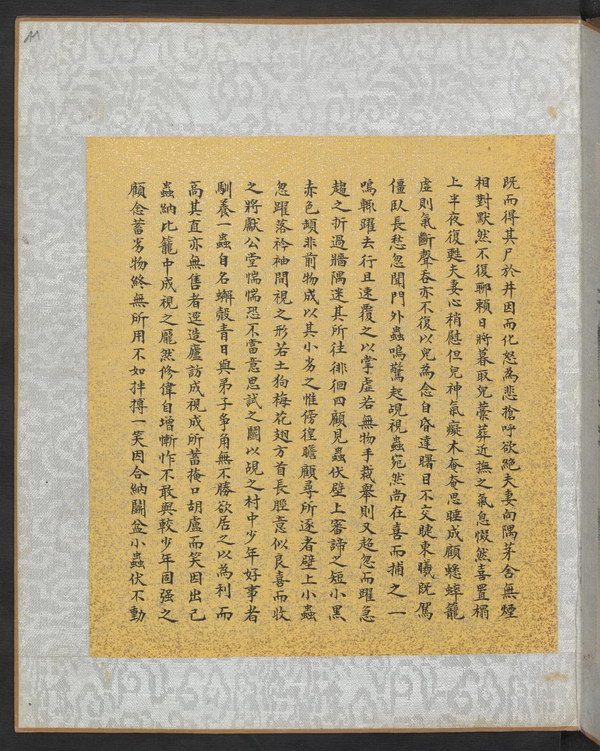 11
既而得其尸於井因而化怒為悲搶呼欲絶夫妻向隅茅舍無煙
相對默然不復聊賴日將暮取兒藁葬近撫之氣息惙然喜置榻
上半夜復甦夫妻心稍慰但兒神氣癡木奄奄思睡成顧蟋蟀籠
虛則氣斷聲吞亦不復以兒為念自昏達曙目不交睫東曦既駕
僵臥長愁忽聞門外蟲鳴驚起覘視蟲宛然尚在喜而捕之一
鳴輒躍去行且速覆之以掌虛若無物手裁舉則又超忽而躍急
趨之折過牆隅迷其所往徘徊四顧見蟲伏壁上審諦之短小黑
赤色頓非前物成以其小劣之惟傍徨瞻顧尋所逐者壁上小蟲
忽躍落衿袖間視之形若土狗梅花翅方首長脛意似良喜而收
之將獻公堂惴惴恐不當意思試之鬬以覘之村中少年好事者
馴養一蟲自名蟹殼青日與弟子爭角無不勝欲居之以為利而
高其直亦無售者逕造廬訪成視成所蓄掩口胡盧而笑因出己
蟲納比籠中成視之龐然修偉自增慚怍不敢與較少年固强之
顧念蓄劣物終無所用不如拌搏一笑因合納鬬盆小蟲伏不動